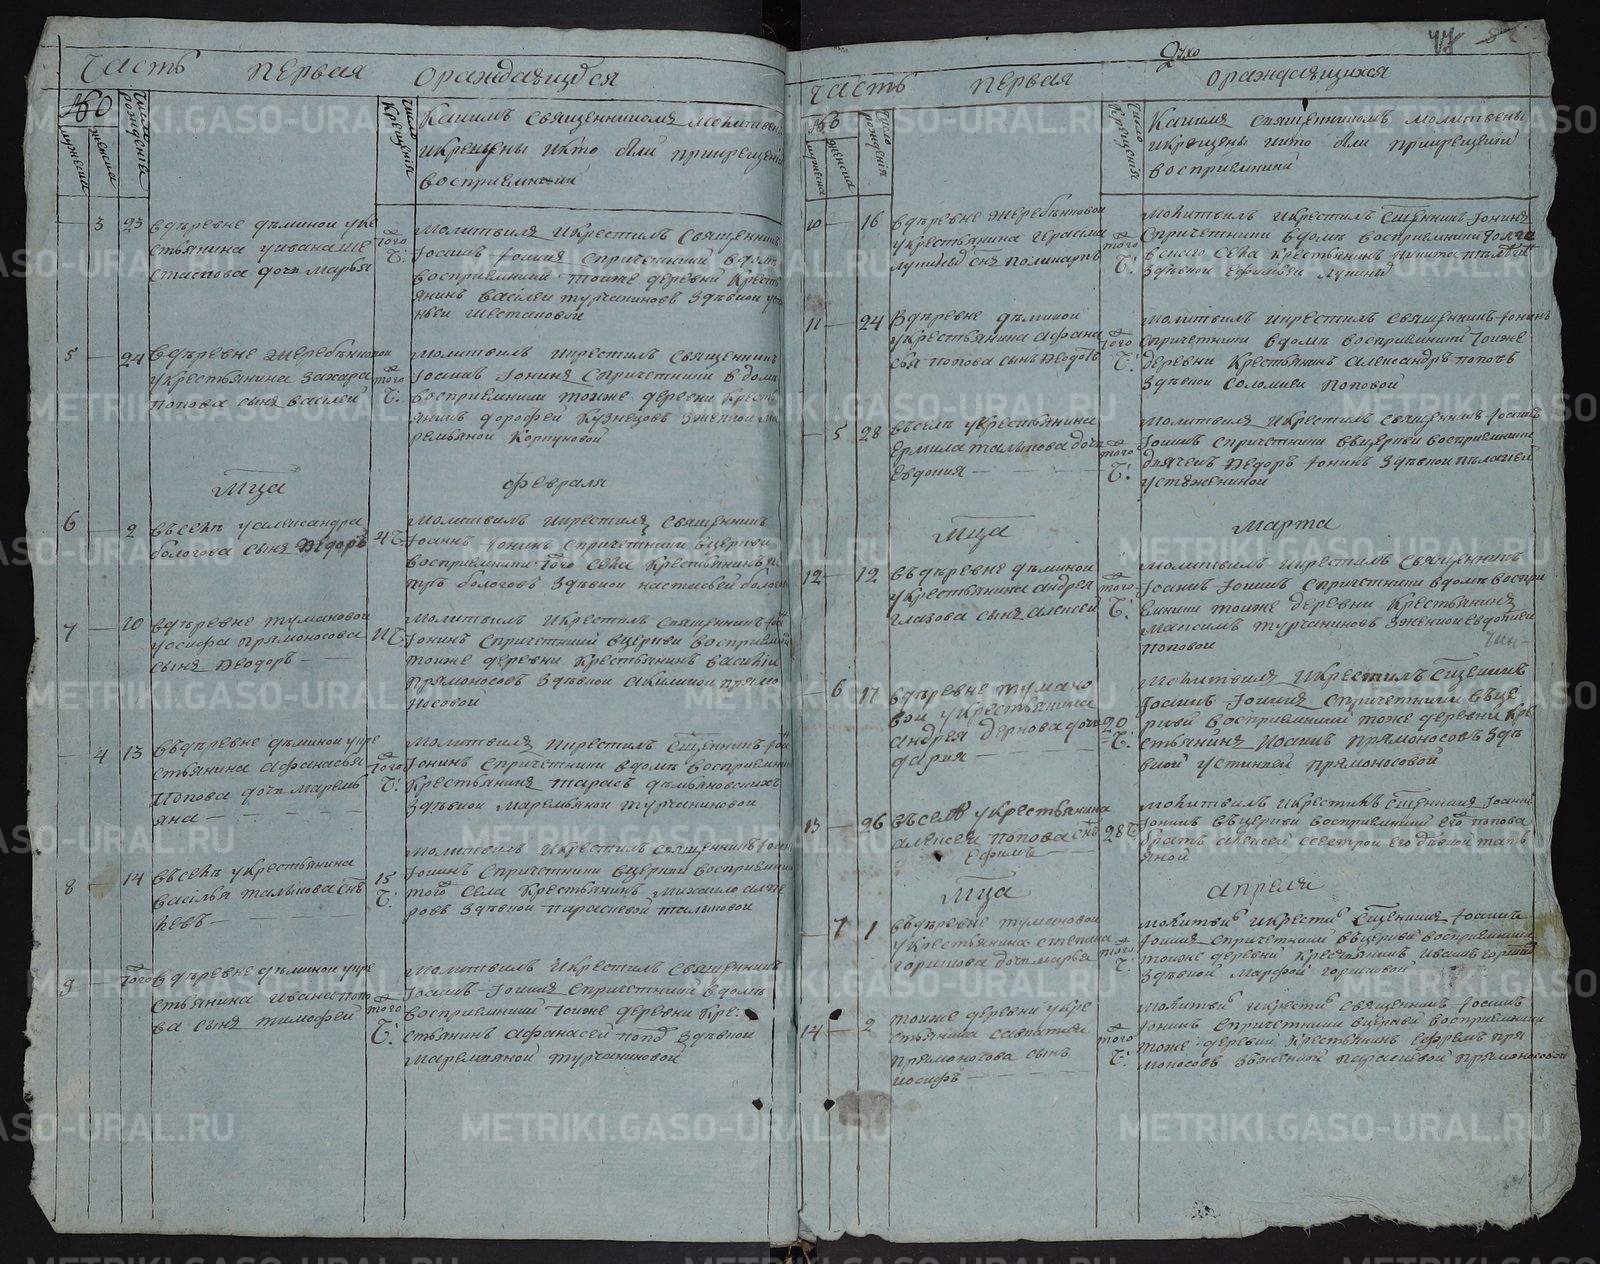 Часть первая ораждающихся
№
мужеска
женска
число рождения
число крещения
Какимъ священникомъ молитвены
и крещены и кто были при крещении
восприемники
3 23 в деревне деминой у кре
стьянина Ивана Ше
стакова дочь Марья
того ч:
Молитвилъ и крестилъ священникъ
Иоаннъ Ионинъ с причетники в доме
восприемники тоиже деревни кресть
янинъ Василеи Турчаниновъ з девкои
Шестаковой
5 24 в деревне Жеребенковои
у крестьянина Захара
Попова сынъ Василеи
того ч:
Молитвилъ и крестилъ священникъ
Иоаннъ Ионинъ с причетники в доме
восприемники тоиже деревни кресть
янинъ Дорофей Кузнецовъ з женкои
Корпуковой
мца Февраля
6 2 въ селе у Александра
Бологова сынъ Федоръ
4 ч.
Молитвилъ и крестилъ священникъ
Иоаннъ Ионинъ с причетники в церкви
восприемники того села крестьянинъ Пе
тръ Бологовъ з девкои Настасьей
7 10 в деревне Тумановой
у Осифа Прямоносова
сынъ Феодоръ
11 ч.
Молитвилъ и крестилъ священникъ
Ионинъ с причетники в церкви восприемники
тоиже деревни крестьянинъ Василеи
Прямоносовъ з девкой Акилиной Прямо
носовой
4 13 въ деревне Деминои у кре
стьянина Афанасья
Попова дочь Маремь
яна
того ч:
Молитвилъ и крестилъ сщенникъ
Ионинъ с причетники в доме восприемники
крестьянинъ Тарасъ Демьяновскихъ
з девкой Маремьяной Турчаниновой
8 14 въ селе у крестьянина
Василья Талькова снъ
Левъ
15 ч:
Молитвилъ и крестилъ священникъ
Ионинъ с причетники в церкви восприемники
того села крестьянинъ Михаило
з девкой Парасковьей Тальковой
9 того в деревне Деминои у кре
стьянина Ивана Попо
ва сынъ Тимофей
того ч:
Молитвилъ и крестилъ священникъ
Иоаннъ Ионинъ с причетники в доме
восприемники тоиже деревни кре
стьянинъ Афанасей Попо з девкой
Маремьяной Турчаниновой
77
Часть первая ораждающихся
№
мужеска
женска
число рождения
число крещения
Какимъ священникомъ молитвены
и крещены и кто были при крещении
восприемники
10 16 в деревне Жеребенковой
у крестьянина Герасима
Лупина снъ Поликарпъ
того ч:
Молитвилъ и крестилъ сщенникъ Ионинъ
с причетники в доме восприемники
села крестьянинъ Никита
з девкой Ефимьей Лупиной
11 24 в деревне Деминой
у крестьянина Афана
сья Попова сынъ Феодотъ
того ч:
Молитвилъ и крестилъ священникъ Ионинъ
с причетники в доме восприемники тоиже
деревни крестьянинъ Александръ Поповъ
з девкой Соломией Поповой
5 28 въ селе у крестьянина
Ермила Талькова дочь
Евдокия
того ч:
Молитвилъ и крестилъ священникъ Иоаннъ
Ионинъ с причетники в церкви восприемники
дьячекъ Федоръ Ионинъ з девкой Пелагией
Устюжениной
мца Марта
12 12 въ деревне Деминой
у крестьянина Андрея
Глазова сынъ Алексей
того ч:
Молитвилъ и крестилъ священникъ
Иоаннъ Ионинъ с причетники в доме воспри
емники тоиже деревни крестьянинъ
Максимъ Турчаниновъ з женкой Евдокией
Поповой
6 17 в деревне Тумано
вой у крестьянина
Андрея Дернова дочь
Дария
20 ч.
Молитвилъ и крестилъ сщенникъ
Иоаннъ Ионинъ с причетники въ це
ркви восприемники тоже деревни кре
стьянинъ Иоаннъ Прямоносовъ з де
вкой Устиньей Прямоносовой
13 26 в селе у крестьянина
Алексея Попова снъ
Ефимъ
28 ч
Молитвилъ и крестилъ сщенникъ Иоаннъ
Ионинъ въ церкви восприемники его Попова
братъ Алексей с сестрой его девкой Тать
яной
мца Апреля
7 1 в деревне Тумановой
у крестьянина Степана
Горшкова дочь Марья
того ч:
Молитви и крести сщенникъ Иоаннъ
Ионинъ с причетники в церкви восприемники
тоиже деревни крестьянинъ Иванъ
з девкой Марфой Горшковой
14 2 тоиже деревни у кре
стьянина Савватия
Прямоносова сынъ
Иосифъ
того ч:
Молитви и крести священникъ Иоаннъ
Ионинъ с причетники в церкви восприемники
тоже деревни крестьянинъ Ефремъ Пря
моносовъ з женкой Парасковей Прямоносовой
METRIKI.GASO-URAL.RU